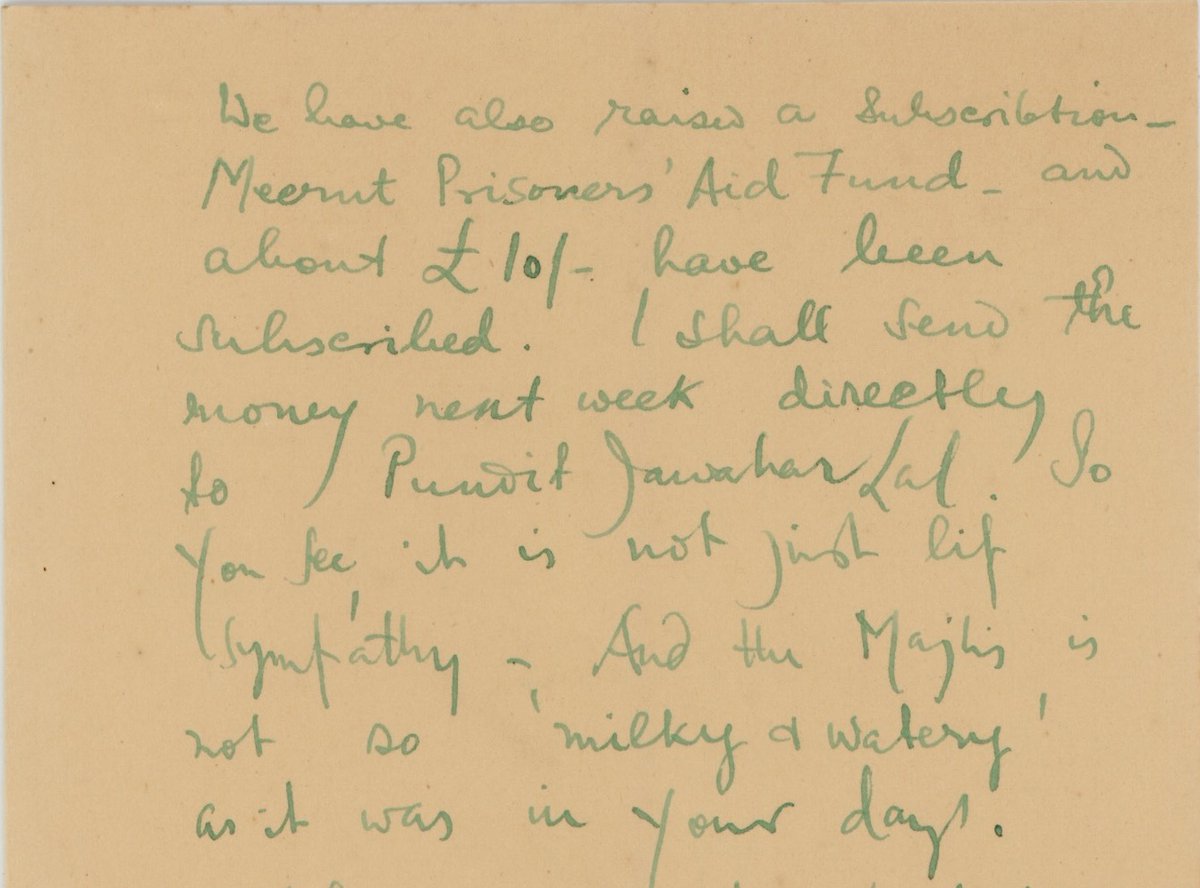 We have also raised a Subscribtion -
Meerut Prisoners' Aid Fund - and
about £ 10/- have been
subscribed. I shall send the
money next week directly
to Pundit Jawahar Lal. So
you see, it is not just lip
sympathy - And the Majlis is
not so 'milky & watery'
as it was in your days.